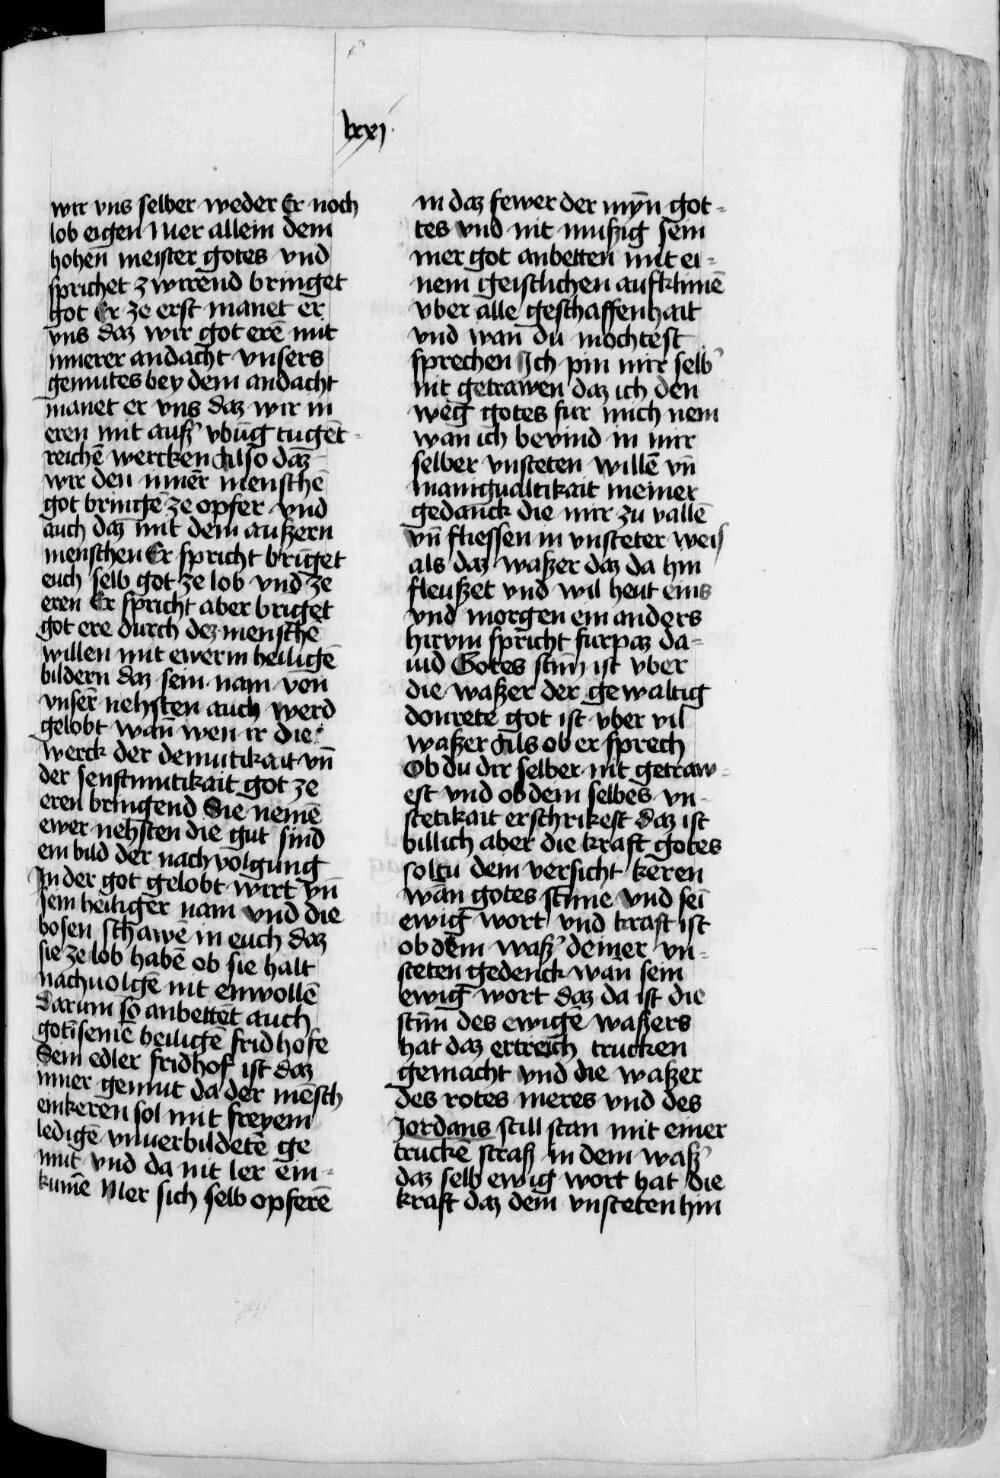 lxxj
wir vns selber weder Er noch
lob eigen Mer allein dem
hohen meister gotes vnd
sprichet zwirend bringet
got Er ze erst manet er
vns daz wir got erē mit
innerer andacht vnsers
gemutes bey dem andacht
manet er vns daz wir in
eren mit auß' vbūg tugēt-
reichē wercken Also daz
wir den innēr menschē
got bringē ze opfer vnd
auch daz mit dem außern
menschen Er spricht brīget
euch selb got ze lob vnd ze
eren Er spricht aber briget
got ere durch dez menschē
willen mit ewerm heiligē
bildern daz sein nam von
vnserr nehsten auch werd
gelobt wañ wen ir die
werck der demutikait vñ
der senftmutikait got ze
eren bringend Sie nemē
ewer nehsten die gut sind
ein bild der nachvolgung
In der got gelobt wirt vñ
sein heiliger nam vnd die
bosen schawē in euch daz
sie ze lob habē ob sie halt
nachuolgē nit enwollē
Darum so anbettet auch
got in seinē heiligē fridhofe
Sein edler fridhof ist daz
inner gemut da der mēsch
einkeren sol mit freyem
ledigē vnuerbildetē ge
mut vnd da nit ler ein-
kumē Mer sich selb opferē
in daz fewer der myñ got-
tes vnd nit mußig sein
mer got anbetten mit ei-
nem geistlichen aufklimē
vber alle geschaffenhait
vnd wan du mochtest
sprechen Ich pin mir selb'
nit getrawen daz ich den
weg gotes fur mich nem
wan ich bevind in mir
selber vnsteten willē vñ
manigualtikait meiner
gedanck die mir zu vallē
vñ fliessen in vnsteter weis
als daz waßer daz da hin
fleußet vnd wil heut eins
vnd morgen ein anders
hirvm spricht furpaz da-
uid Gotes stim ist vber
die waßer der gewaltig
donrete got ist vber vil
waßer Als ob er sprech
Ob du dir selber nit getraw-
est vnd ob dem selbes vn-
stetikait erschrikest daz ist
billich aber die kraft gotes
soltu dem versicht keren
wan gotes stime vnd sei
ewig wort vnd kraft ist
ob dem waß' deiner vn-
steten gedenck wan sein
ewig wort daz da ist die
stim des ewigē waßers
hat daz ertreich trucken
gemacht vnd die waßer
des rotes meres vnd des
Jordans still stan mit einer
truckē straß in dem waß'
daz selb ewig wort hat die
kraft daz dem vnsteten hin